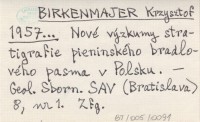 BIRKENMAJER Krzysztof
1957... Nové výzkumy stra-
tigrafie pieninského bradlo-
vého pasma v Polsku. —
Geol. Sborn. SAV (Bratislava)
8, nr 1. Zfg.
BT/005/0091